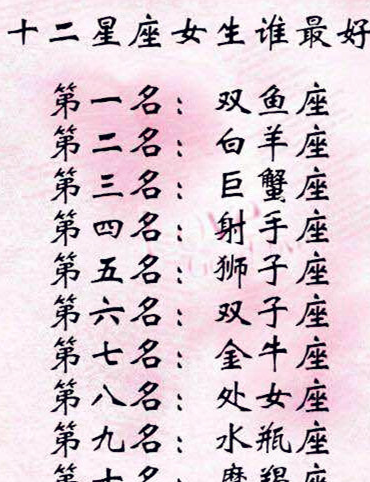 十二星座女生谁最好
第一名：双鱼座
第二名：白羊座
第三名：巨蟹座
第四名：射手座
第五名：狮子座
第六名：双子座
第七名：金牛座
第八名：处女座
第九名：水瓶座
第十名：摩羯座